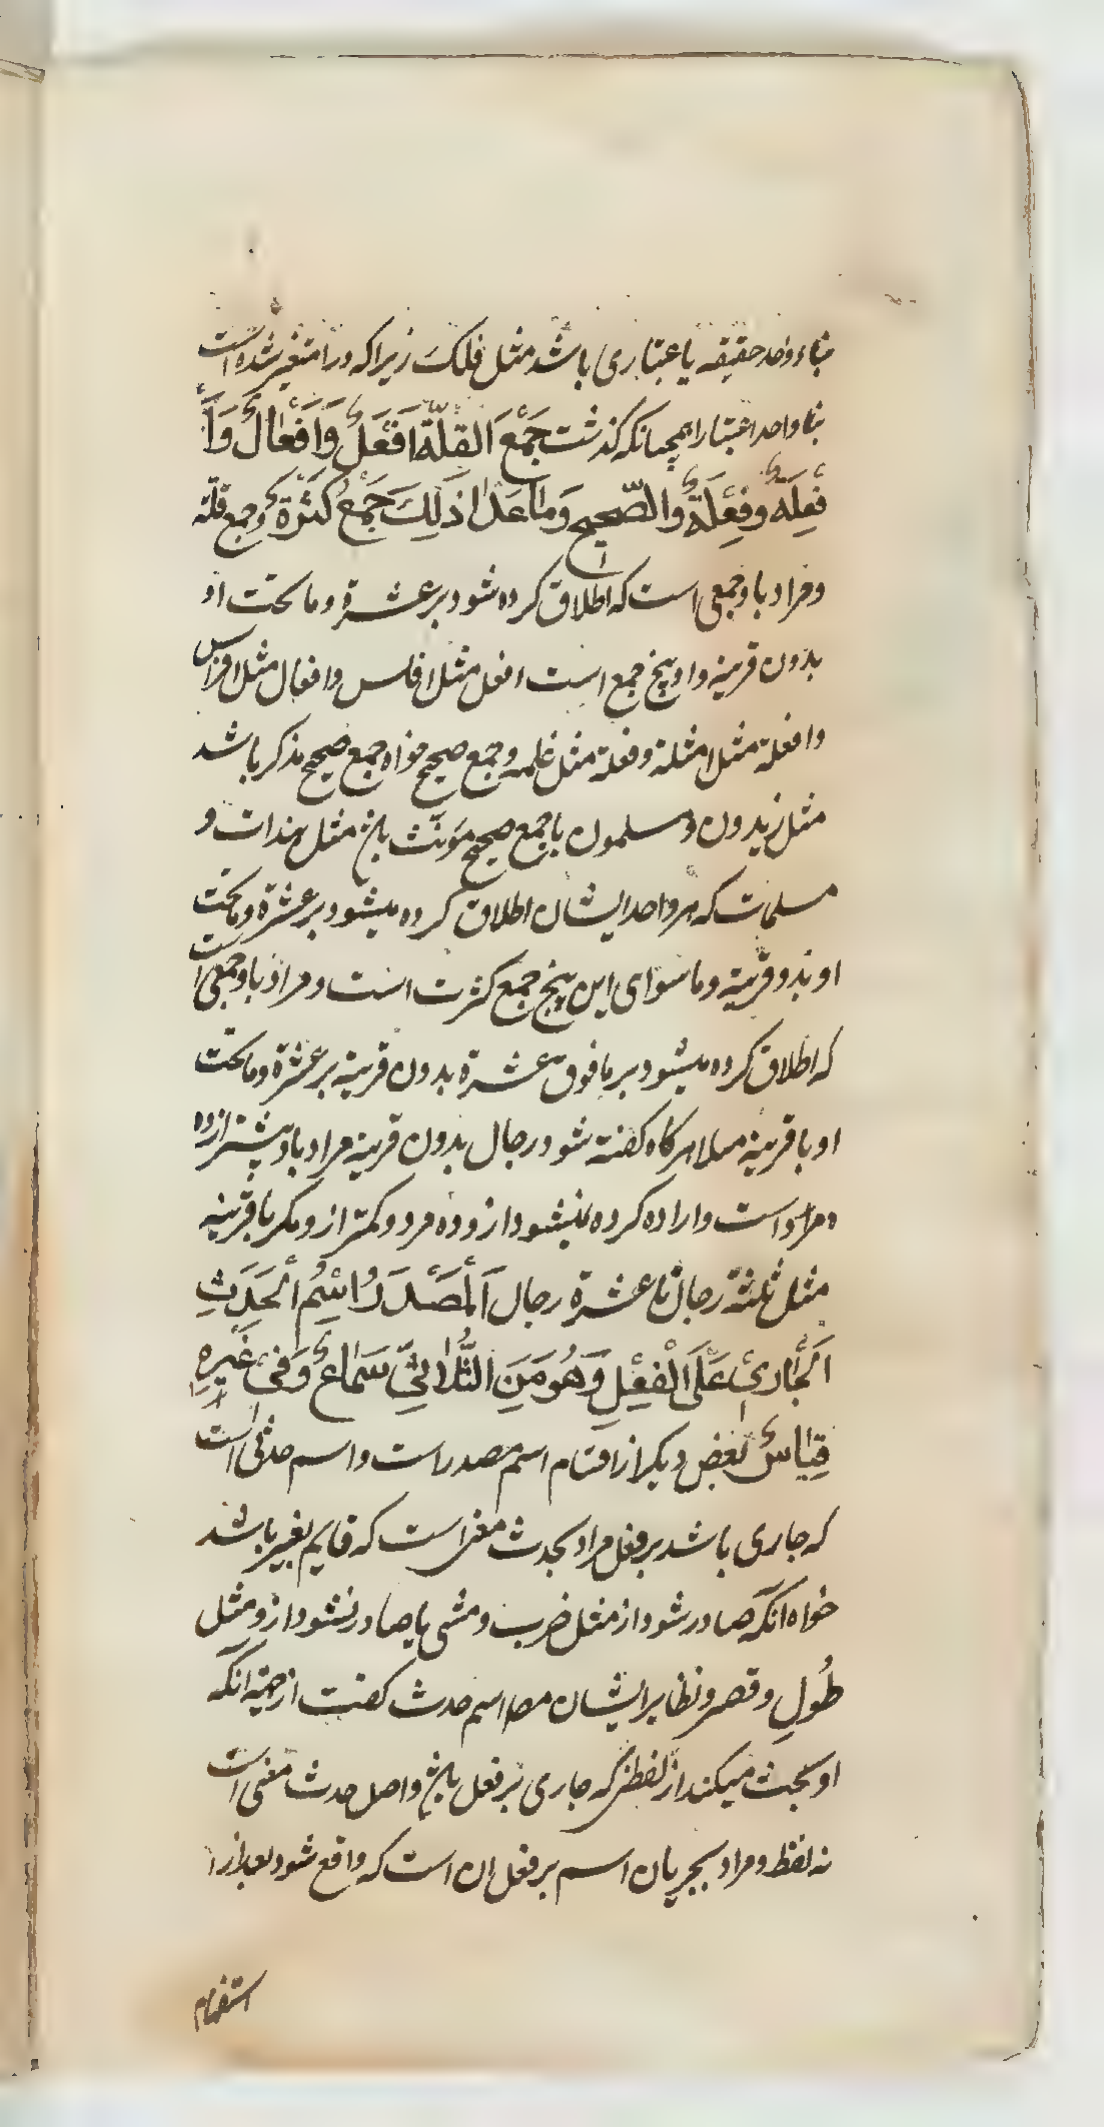 بناء واحد حقیقه یا عتباری باشد مثل فلک زیراکه درا متغیر شده است
بنا واحد اعتبارا همچنانکه گذشت جَمْعُ القِلَّةِ اَفْعَلُ وَاَفْعَالُ وَاَ
فْعِلَةُ وَفِعْلَةُ وَالصَّحِیح وَمٰا عَدٰا ذٰلِکَ جَمْعُ کَثْرَة وجمع قلّه
ومراد باو جمعی است که اطلاق کرده شود بر عشرة وما تحت او
بدون قرینه واو پنج جمع است افعل مثل افلس وافعال مثل افراس
وافعلة مثل امثلة وفعلة مثل غلمه وجمع صحیح خواه جمع صحیح مذکر باشد
مثل زیدون ومسلمون یا جمع صحیح مونث باشد مثل هندات و
مسلمات که هر واحد ایشان اطلاق کرده میشود بر عشرة وما تحت
او بدو قرینة وما سوای این پنج جمع کثرت است ومراد باو جمعی است
که اطلاق کرده میشود بر ما فوق عشرة بدون قرینة بر عشرة وما تحت
او با قرینة مثلا هرکاه کفته شود رجال بدون قرینة مراد باو بیشتر از ده
مرد است واراده کرده نمیشود ازو ده مرد وکمتر ازو مکر با قرینه
مثل ثلثة رجال تا عشرة رجال اَلْمَصْدَرُ اِسْمُ الْحَدَثِ
اَلْجٰارِیْ عَلَی الْفِعْلِ وَهُوَ مِنَ الثُّلاثِیِّ سَمٰاعٌ وَفِیْ غَیْرِهِ
قِیٰاسٌ بعض دیکر از اقسام اسم مصدر است واسم حدثی است
که جاری باشد بر فعل مراد بحدث معنی است که قایم بغیر باشد
خواه انکه صادر شود از مثل ضرب ومشی یا صادر نشود ازو مثل
طُولِ وقصر ونظایر ایشان مصا اسم حدث کفت از جهة انکه
او بحث میکند از لفظی که جاری بر فعل باشد واصل حدث معنی است
نه لفظ ومراد بجریان اسم بر فعل ان است که واقع شود بعد از ا